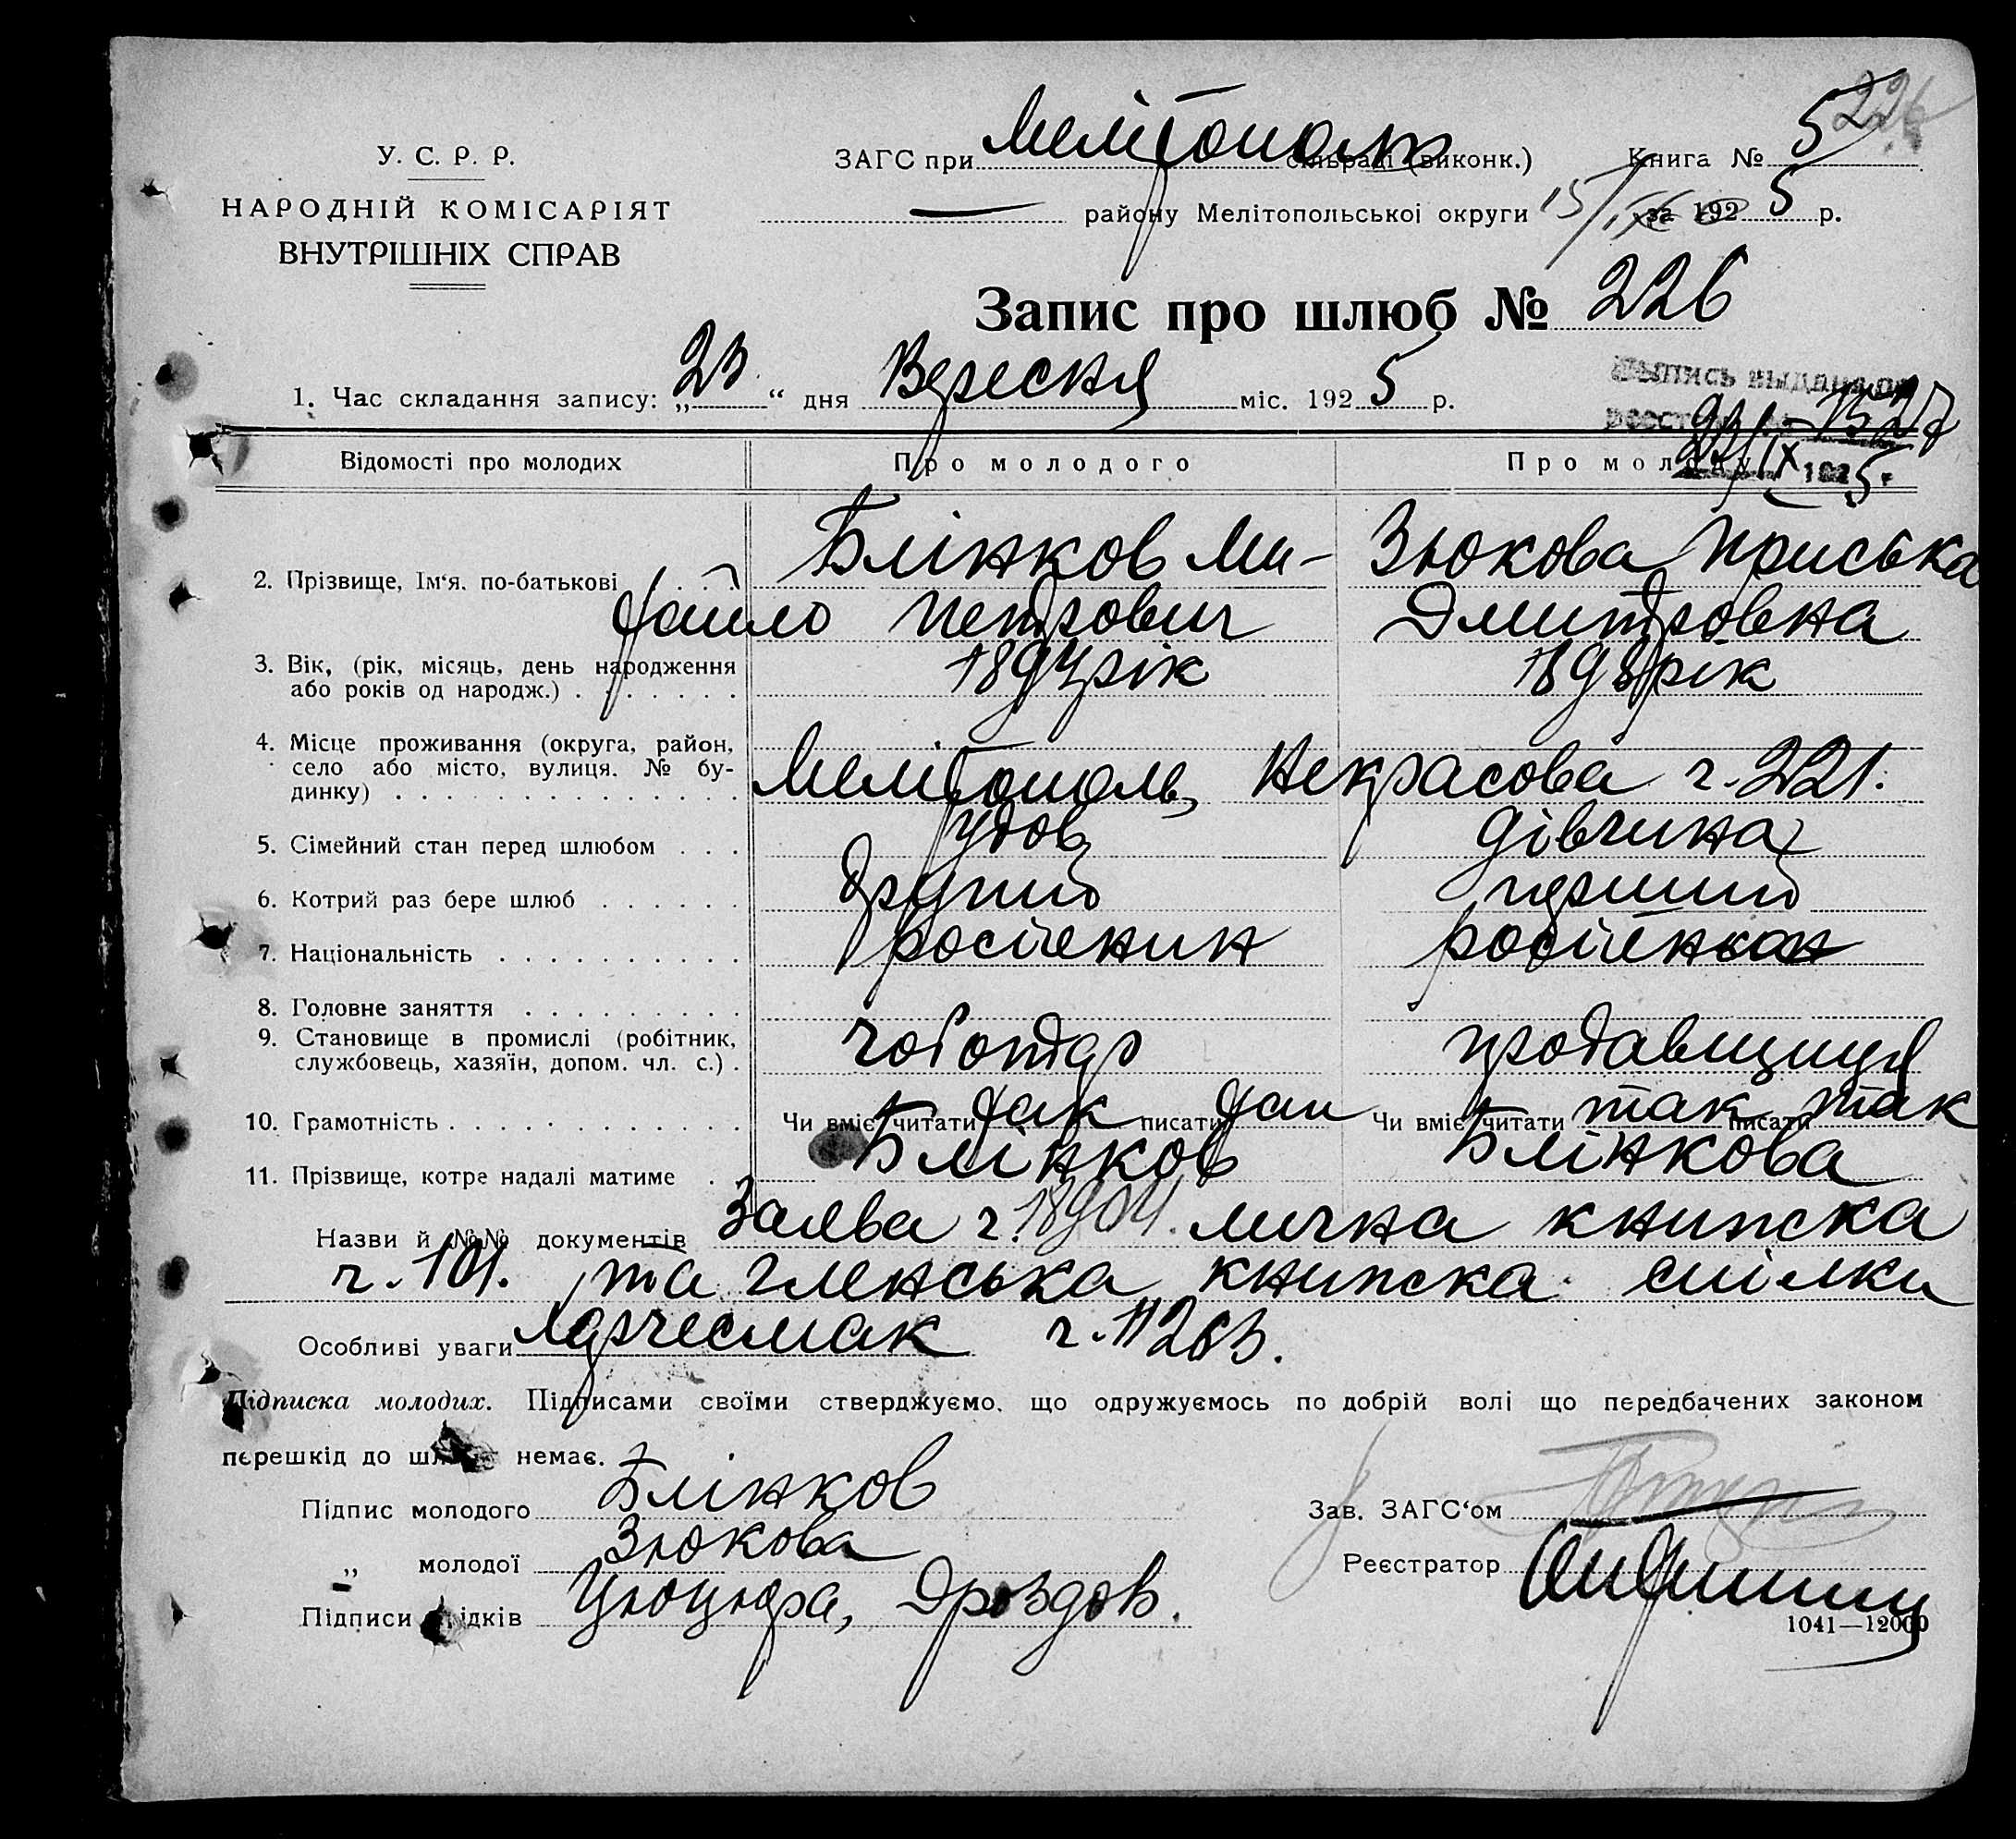 226
У. С. Р. Р.
НАРОДНІЙ КОМІСАРІЯТ
ВНУТРІШНІХ СПРАВ
ЗАГС при Мелітополь сільраді (виконк.) Книга № 5
— району Мелітопольської округи 15/IX за 192 5 р.
Запис про шлюб № 226
1. Час складання запису: „ 23 “ дня Вересня міс. 192 5 р.
Выпись выдана по
реестр
23/IX 192 5 г
Відомості про молодих Про молодого Про молоду
2. Прізвище, Ім'я, по-батькові Блінков Ми- Зюкова Приська
хайло Петрович Дмитровна
3. Вік, (рік, місяць, день народження
або років од народж.) 1894 рік 1898 рік
4. Місце проживання (округа, район,
село або місто, вулиця. № бу-
динку) Мелітополь, Некрасова ч. 221.
5. Сімейний стан перед шлюбом удов. дівчина
6. Котрий раз бере шлюб другий перший
7. Національність росіянин росіянка
8. Головне заняття
9. Становище в промислі (робітник,
службовець, хазяїн, допом. чл. с.) чоботар продавщиця
10. Грамотність Чи вміє читати так писати так Чи вміє читати так писати так
11. Прізвище, котре надалі матиме Блінков Блінкова
Назви й №№ документів Заява ч. 18904. лична книжка
ч. 101. та членська книжка спілки
Особливі уваги Харчесмак ч. 11263.
Підписка молодих. Підписами своїми стверджуємо, що одружуємось по добрій волі що передбачених законом
перешкід до шлюбу немає.
Підпис молодого Блінков
Зав. ЗАГС'ом
„ молодої Зюкова
Реєстратор
Підписи свідків Цюцюра, Дроздов.
1041—12000